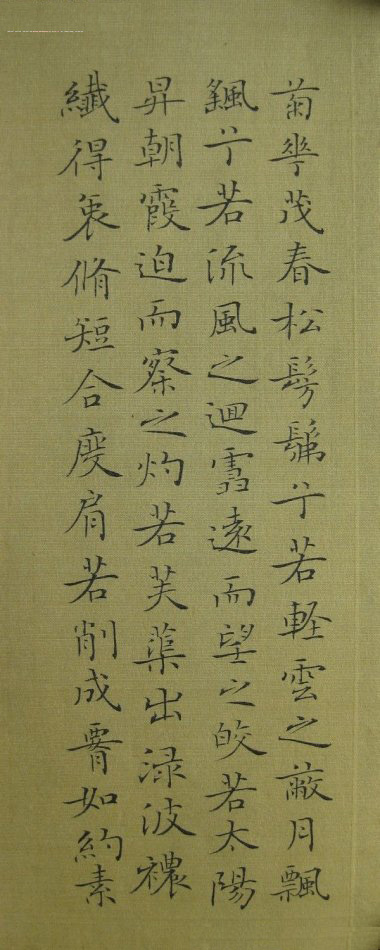 菊華茂春松髣髴兮若軽雲之蔽月飄
颻兮若流風之迴雪遠而望之皎若太陽
昇朝霞迫而察之灼若芙蕖出渌波襛
纖得衷脩短合度肩若削成腰如約素